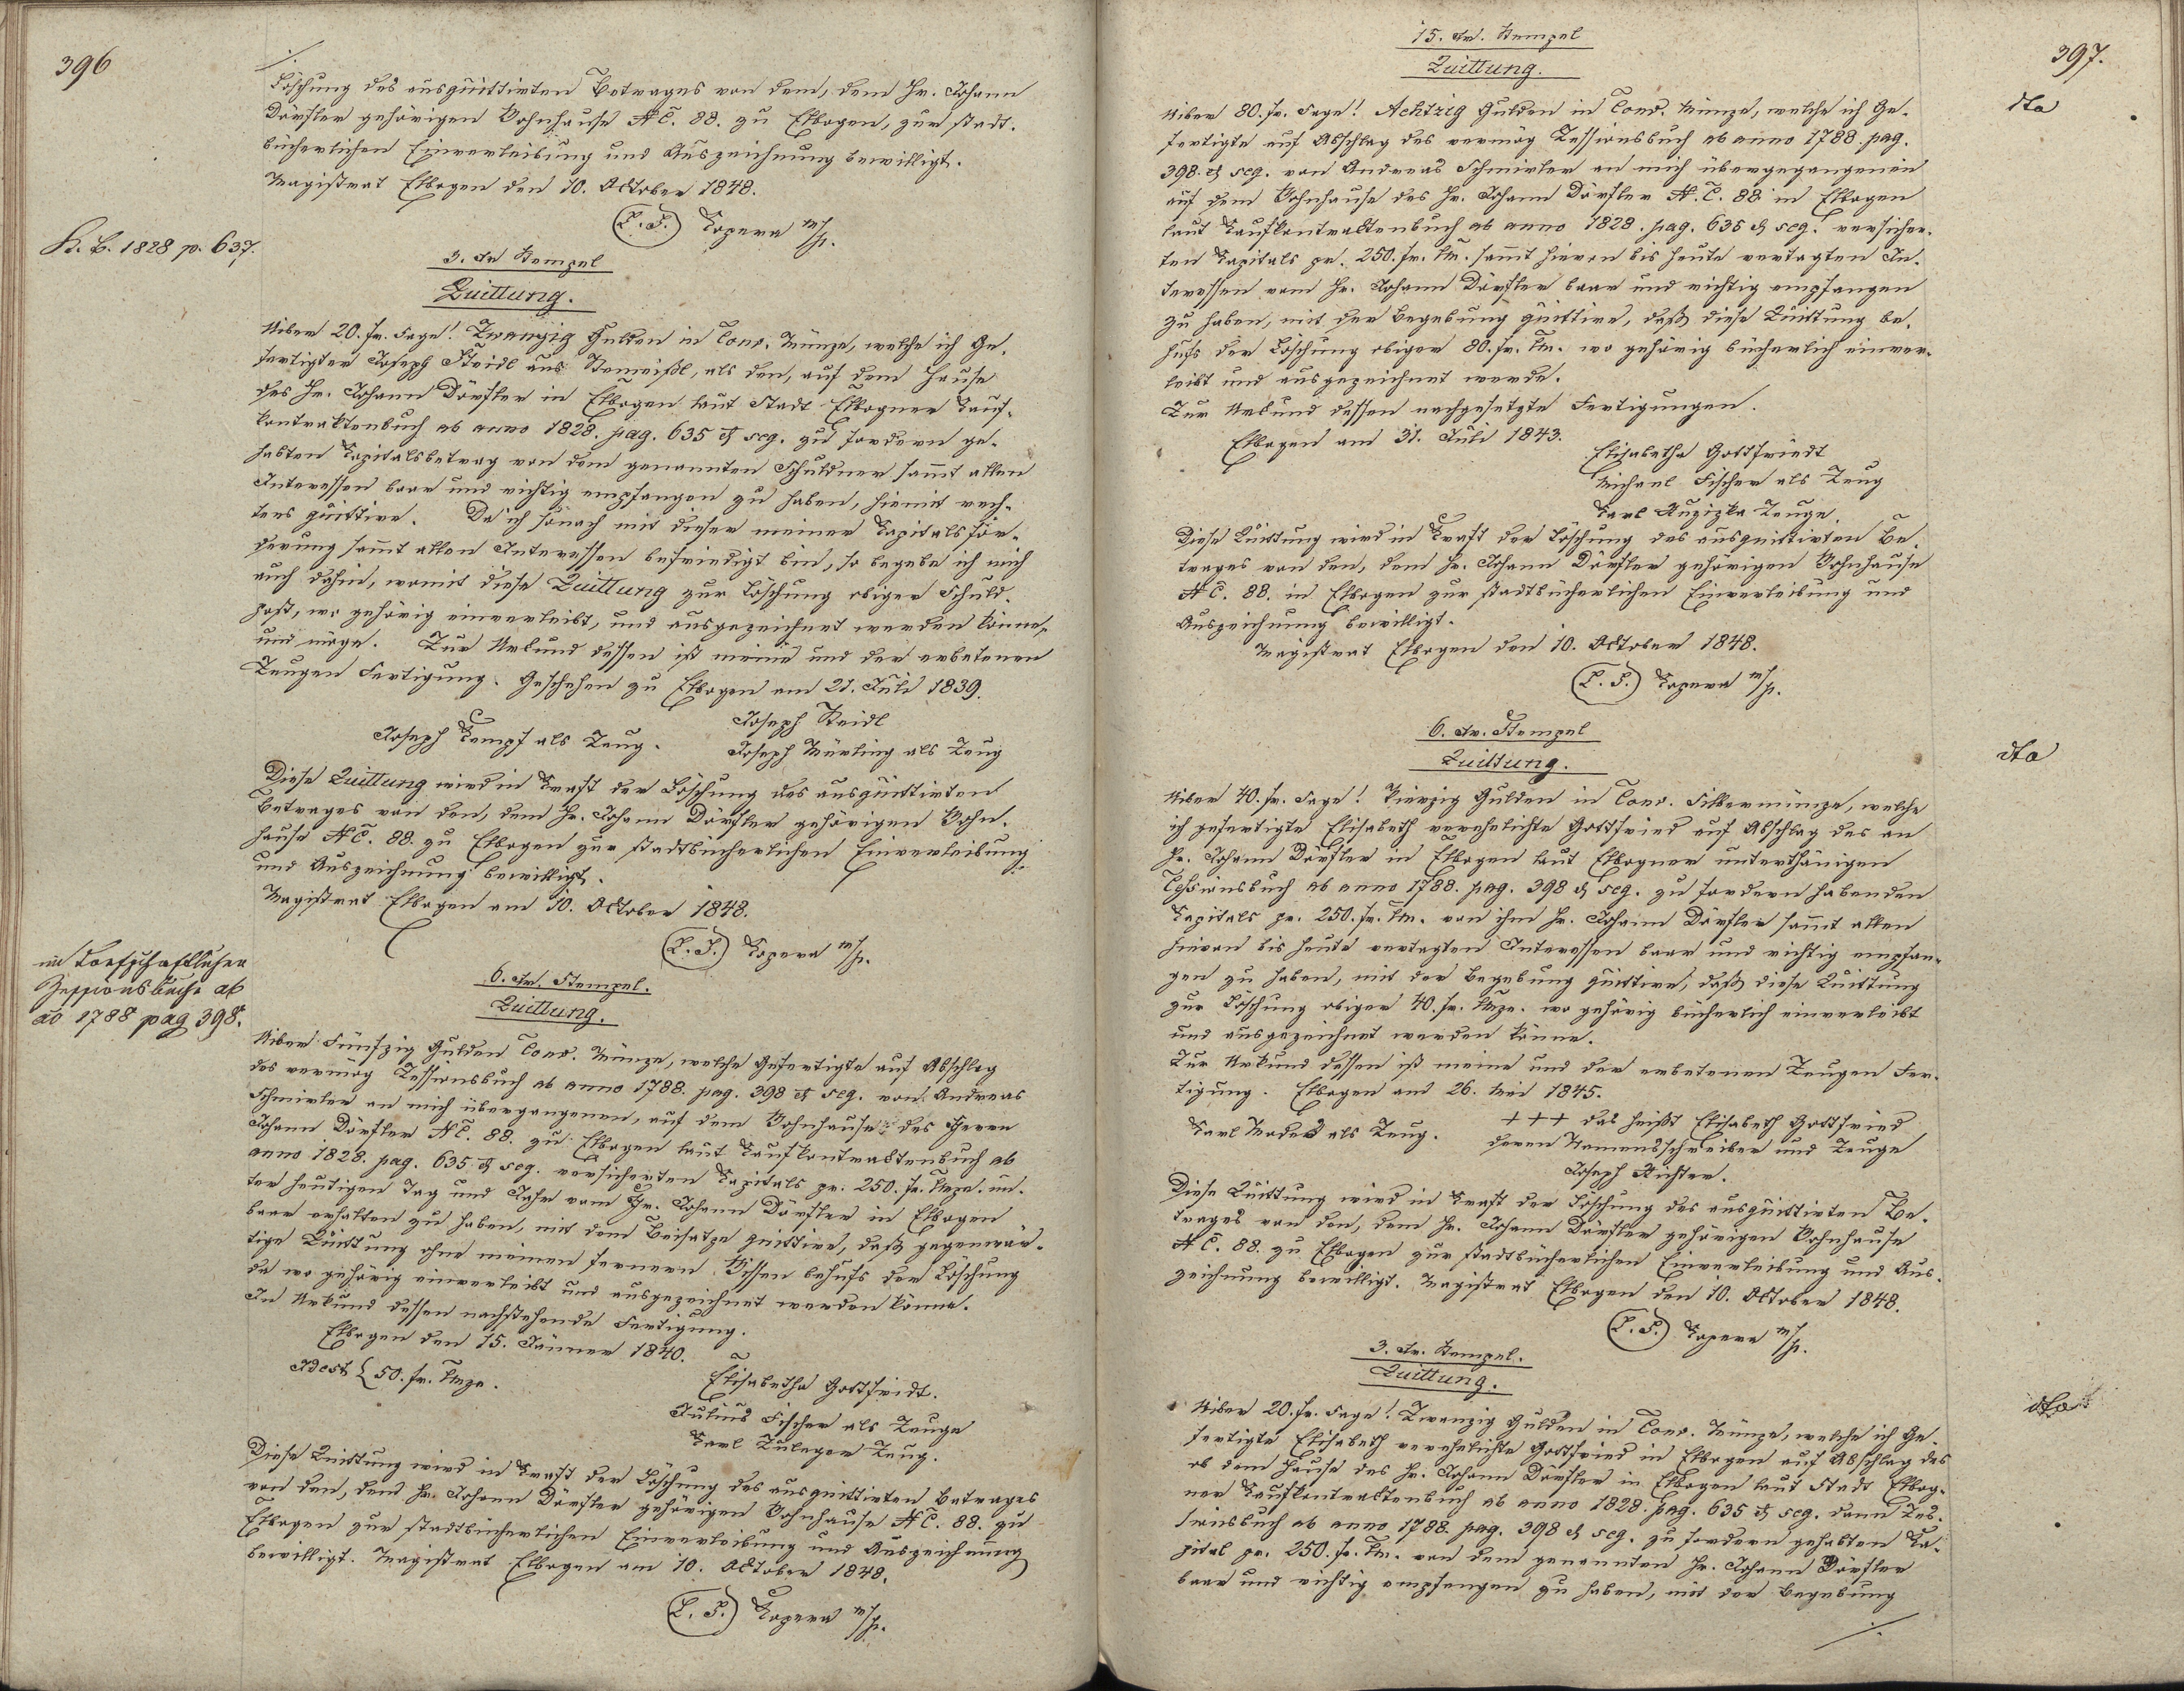 396
./.
Löschung des ausquittirten Betrages von dem, dem Hr. Johann
Dörfler gehörigen Wohnhause NC. 88. zu Elbogen, zur stadt-
bücherlichen Einverleibung und Auszeichnung bewilligt.
Magistrat Elbogen den 10. October 1848.
(L.S.) Kopera m/p.
K. B. 1828 p. 637.
3. Xr Stempel
Quittung.
Uiber 20. fr. Sage! Zwanzig Gulden in Conv. Münze, welche ich Ge-
fertigter Joseph Steidl aus, als den, auf dem Hause
des Hr. Johann Dörfler in Elbogen laut Stadt Elbogner Kauf-
kontraktenbuch ab anno 1828. pag. 635 & seq. zu fordern ge-
habten Kapitalsbetrag von dem genannten Schuldner sammt allen
Interessen baar und richtig empfangen zu haben, hiemit rech-
tens quittire. Da ich sonach mit dieser meiner Kapitalsfor-
derung sammt allen Interessen befriedigt bin, so begebe ich mich
auch dahin, womit diese Quittung zur Löschung obiger Schuld-
post, wo gehörig einverleibt, und ausgezeichnet werden könne,
und möge. Zur Urkund dessen ist meine und der erbetenen
Zeugen Fertigung. Geschehen zu Elbogen am 21. Juli 1839.
Joseph Steidl
Joseph Kempf als Zeug. Joseph Würling als Zeug
Diese Quittung wird in Kraft der Löschung des ausquittirten
Betrages von den, dem Hr. Johann Dörfler gehörigen Wohn-
hause NC. 88. zu Elbogen zur stadtbücherlichen Einverleibung
und Auszeichnung bewilligt.
Magistrat Elbogen am 10. October 1848.
(L.S.) Kopera m/p.
im dorfschaftlichen
Zessionsbuche ab
ao 1788 pag 398.
6. Xr. Stempel.
Quittung.
Uiber Fünfzig Gulden Conv. Münze, welche Gefertigte auf Abschlag
des vermög Zessionsbuch ab anno 1788. pag. 398 & seq. von Andreas
Schmirler an mich übergangenen, auf dem Wohnhause des Herrn
Johann Dörfler NC. 88. zu Elbogen laut Kaufkontraktenbuch ab
anno 1828. pag. 635 & seq. versicherten Kapitals pr. 250. fr. Mze. un-
ter heutigen Tag und Jahr vom Hr. Johann Dörfler in Elbogen
baar erhalten zu haben, mit dem Beisatze quittire, daß gegenwär-
tige Quittung ohne meinen fernern Wissen behufs der Löschung
da wo gehörig einverleibt und ausgezeichnet werden könne.
In Urkund dessen nachstehende Fertigung.
Elbogen den 15. Jänner 1840.
Idest { 50. fr. Mze.
Elisabetha Gottfridt.
Julius Fischer als Zeuge
Karl Zuleger Zeug.
Diese Quittung wird in Kraft der Löschung des ausquittirten Betrages
von den, dem Hr. Johann Dörfler gehörigen Wohnhause NC. 88. zu
Elbogen zur stadtbücherlichen Einverleibung und Auszeichnung
bewilligt. Magistrat Elbogen am 10. October 1848.
(L.S.) Kopera m/p.
397.
15. Xr. Stempel
Quittung.
dto
Uiber 80. fr. Sage! Achtzig Gulden in Conv. Münze, welche ich Ge-
fertigte auf Abschlag des vermög Zessionsbuch ab anno 1788. pag.
398. & seq. von Andreas Schmirler an mich übergegangenen
auf dem Wohnhause des Hr. Johann Dörfler N. C. 88 in Elbogen
laut Kaufkontraktenbuch ab anno 1828. pag. 635 & seq. versicher-
ten Kapitals pr. 250. fr. Mz. sammt hievon bis heute vertagten In-
teressen vom Hr. Johann Dörfler baar und richtig empfangen
zu haben, mit der Begebung quittire, daß diese Quittung be-
hufs der Löschung obiger 80. fr. Mz. wo gehörig bücherlich einver-
leibt und ausgezeichnet werde.
Zur Urkund dessen nachgesetzte Fertigungen.
Elbogen am 31. Juli 1843.
Elisabetha Gottfriedt
Michael Fischer als Zeug
Karl Zeuge.
Diese Quittung wird in Kraft der Löschung des ausquittirten Be-
trages von den, dem Hr. Johann Dörfler gehörigen Wohnhause
NC. 88. in Elbogen zur stadtbücherlichen Einverleibung und
Auszeichnung bewilligt.
Magistrat Elbogen den 10. October 1848.
(L.S.) Kopera m/p.
6. Xr. Stempel
Quittung.
dto
Uiber 40. fr. Sage! Vierzig Gulden in Conv. Silbermünze, welche
ich gefertigte Elisabeth verehelichte Gottfried auf Abschlag des an
Hr. Johann Dörfler in Elbogen laut Elbogner unterthänigen
Cessionsbuch ab anno 1788. pag. 398 & seq. zu fordern habenden
Kapitals pr. 250. fr. Mz. von ihm Hr. Johann Dörfler sammt allen
hievon bis heute vertagten Interessen baar und richtig empfan-
gen zu haben, mit der Begebung quittire, daß diese Quittung
zur Löschung obiger 40. fr. Mze. wo gehörig bücherlich einverleibt
und ausgezeichnet werden könne.
Zur Urkund dessen ist meine und der erbetenen Zeugen Fer-
tigung. Elbogen am 26. Mai 1845.
+++ das heißt Elisabeth Gottfried
Karl als Zeug. deren Namensschreiber und Zeuge
Joseph Richter.
Diese Quittung wird in Kraft der Löschung des ausquittirten Be-
trages von den, dem Hr. Johann Dörfler gehörigen Wohnhause
NC. 88. zu Elbogen zur stadtbücherlichen Einverleibung und Aus-
zeichnung bewilligt. Magistrat Elbogen den 10. October 1848.
(L.S.) Kopera m/p.
3. Xr. Stempel.
Quittung.
dto
Uiber 20. fr. Sage! Zwanzig Gulden in Conv. Münze, welche ich Ge-
fertigte Elisabeth verehelichte Gottfried in Elbogen auf Abschlag des
ob dem Hause des Hr. Johann Dörfler in Elbogen laut Stadt Elbog-
ner Kaufkontraktenbuch ab anno 1828. pag. 635 & seq. dann Zes-
sionsbuch ab anno 1788. pag. 398 & seq. zu fordern gehabten Ka-
pital pr. 250. fr. Mz. von dem genannten Hr. Johann Dörfler
baar und richtig empfangen zu haben, mit der Begebung
./.